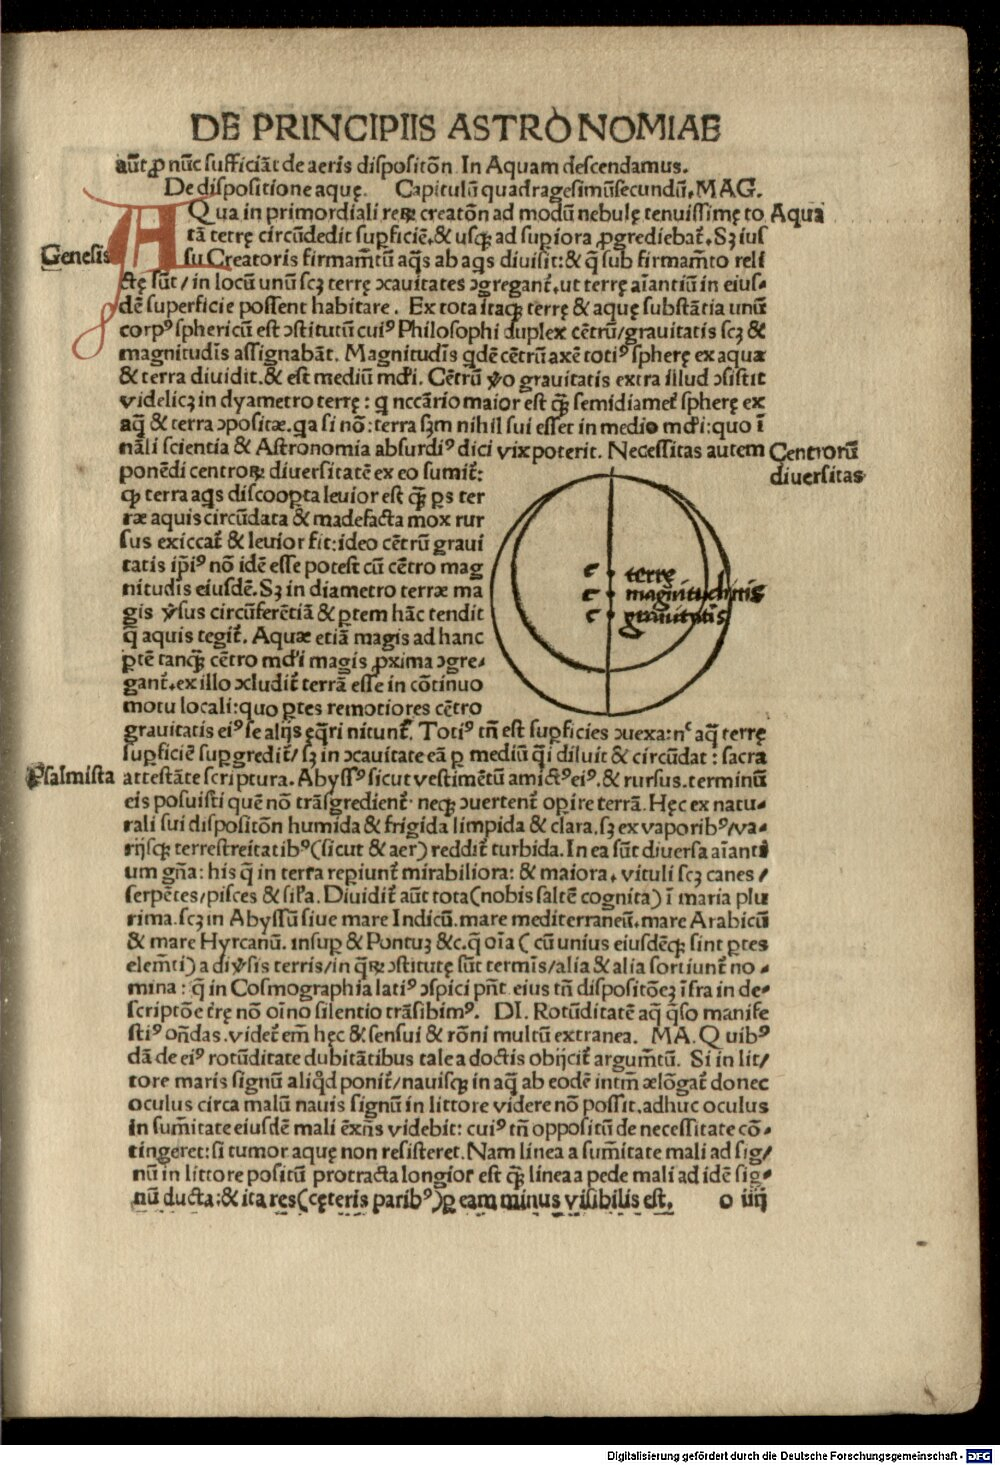 DE PRINCIPIIS ASTRONOMIAE
aūt ꝓ nūc sufficiāt de aeris dispositōn In Aquam descendamus.
De dispositione aquę. Capitulū quadragesimūsecundū. MAG.
AQua in primordiali reꝝ creatōn ad modū nebulę tenuissimę to
Aqua
tā terrę circūdedit suꝑficiē. & usqꝫ ad suꝑiora ꝓgrediebat̄. Sꝫ ius
Genesis
su Creatoris firmam̄tū aq̄s ab aqs diuisit: & q̄ sub firmam̄to reli
ctę sūt / in locū unū scꝫ terrę ɔcauitates ɔgregant̄. ut terrę aīantiū in eius-
dē superficie possent habitare. Ex tota itaqꝫ terrę & aquę substātia unū
corpꝰ sphericū est ɔstitutū cuiꝰ Philosophi duplex cētrū/grauitatis scꝫ &
magnitudīs assignabāt. Magnitudīs qdē cētrū axē totiꝰ spherę ex aqua
& terra diuidit. & est mediū mdi. Cētrū ṽo grauitatis extra illud ɔsistit
videlicꝫ in dyametro terrę: q nccārio maior est qꝫ̄ semidiamet̄ spherę ex
aq̄ & terra ɔpositæ. qa si nō: terra sꝫm nihil sui esset in medio mdi: quo ī
nāli scientia & Astronomia absurdiꝰ dici vix poterit. Necessitas autem
Centrorū
diuersitas
ponēdi centroꝝ diuersitatē ex eo sumit̄:
qꝫ terra aqs discooꝑta leuior est qꝫ̄ ꝑs ter
ræ aquis circūdata & madefacta mox rur
sus exiccat̄ & leuior fit: ideo cētrū graui
tatis ip̄iꝰ nō idē esse potest cū cētro mag
nitudis eiusdē. Sꝫ in diametro terræ ma
gis ṽsus circūferētiā & ꝑtem hāc tendit
q̄ aquis tegit̄. Aquæ etiā magis ad hanc
ꝑtē tanqꝫ̄ cētro mdi magis ꝓxima ɔgre-
gant̄. ex illo ɔcludit̄ terrā esse in cōtinuo
motu locali: quo ꝑtes remotiores cētro
c terrę
c magnitudinis
c grauitatis
grauitatis eiꝰ se alijs ęq̄ri nitunt̄. Totiꝰ tn̄ est suꝑficies ɔuexa: nᶜ aq̄ terrę
suꝑficiē suꝑgredit̄/ sꝫ in ɔcauitate eā ꝑ mediū q̄i diluit & circūdat: sacra
Psalmista
attestāte scriptura. Abyssꝰ sicut vestimētū amictꝰ eiꝰ. & rursus. terminū
eis posuisti quē nō trāsgredient̄ neqꝫ ɔuertent̄ oꝑire terrā. Hęc ex natu-
rali sui dispositōn humida & frigida limpida & clara. sꝫ ex vaporibꝰ/va-
rijsqꝫ terrestreitatibꝰ (sicut & aer) reddit̄ turbida. In ea sūt diuersa aīanti
um gn̄a: his q̄ in terra reꝑiunt̄ mirabiliora: & maiora. vituli scꝫ canes /
serpētes/pisces & sil̄a. Diuidit̄ aūt tota (nobis saltē cognita) ī maria plu
rima. scꝫ in Abyssū siue mare Indicū. mare mediterraneū. mare Arabicū
& mare Hyrcanū. insuꝑ & Pontuꝫ &c. q̄ oīa (cū unius eiusdēqꝫ sint ꝑtes
elem̄ti) a diṽsis terris/in q̄ꝝ ɔstitutę sūt termīs/alia & alia sortiunt̄ no-
mina: q̄ in Cosmographia latiꝰ ɔspici pn̄t. eius tn̄ dispositōeꝫ īfra in de-
scriptōe t̄rę nō oīno silentio trāsibimꝰ. DI. Rotūditatē aq̄ q̄so manife
stiꝰ on̄das. videt̄ em̄ hęc & sensui & rōni multū extranea. MA. Quibꝰ
dā de eiꝰ rotūditate dubitātibus tale a doctis obijcit̄ argum̄tū. Si in lit/
tore maris signū aliq̄d ponit̄/nauisqꝫ in aq̄ ab eodē intm̄ ælōgat̄ donec
oculus circa malū nauis signū in littore videre nō possit. adhuc oculus
in sum̄itate eiusdē mali ēxn̄s videbit: cuiꝰ tn̄ oppositū de necessitate cō-
tingeret: si tumor aquę non resisteret. Nam linea a sum̄itate mali ad sig/
nū in littore positū protracta longior est qꝫ̄ linea a pede mali ad idē sig-
nū ducta: & ita res (cęteris paribꝰ) ꝑ eam minus visibilis est. o iiij
Digitalisierung gefördert durch die Deutsche Forschungsgemeinschaft - DFG